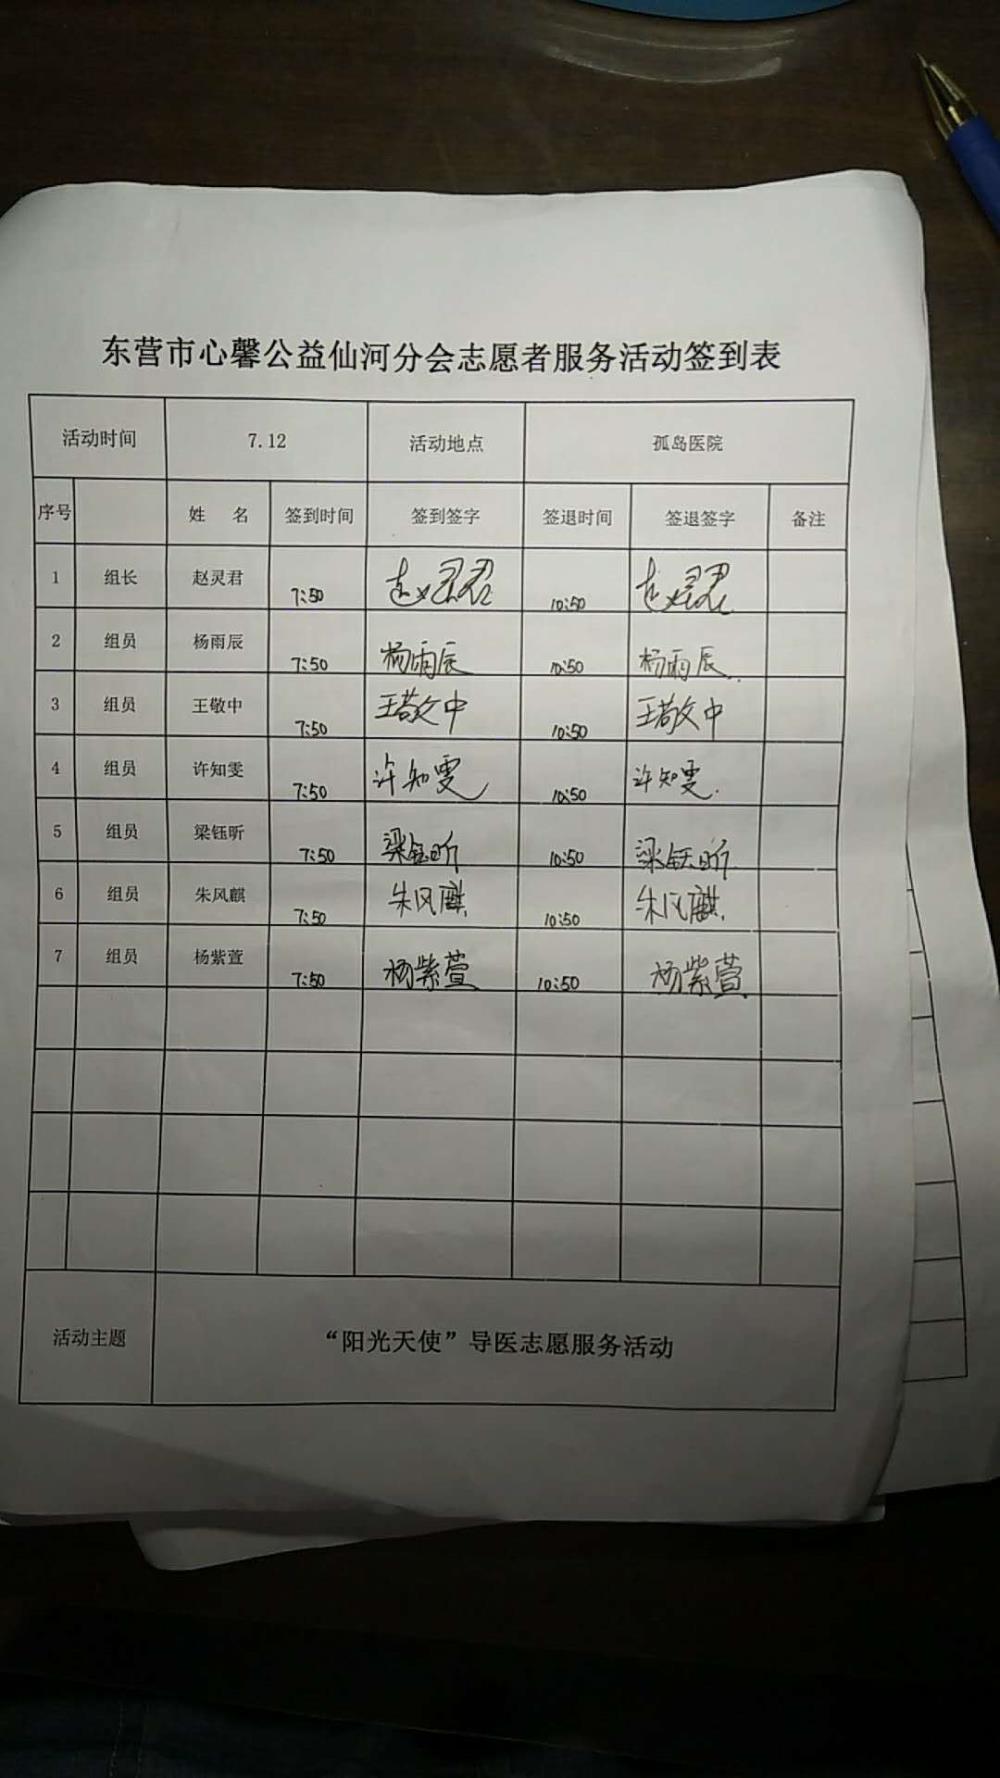 东营市心馨公益仙河分会志愿者服务活动签到表
活动时间 7.12 活动地点 孤岛医院
序号 姓 名 签到时间 签到签字 签退时间 签退签字 备注
1 组长 赵灵君 7:50 赵灵君 10:50 赵灵君
2 组员 杨雨辰 7:50 杨雨辰 10:50 杨雨辰
3 组员 王敬中 7:50 王敬中 10:50 王敬中
4 组员 许知雯 7:50 许知雯 10:50 许知雯
5 组员 梁钰昕 7:50 梁钰昕 10:50 梁钰昕
6 组员 朱风麒 7:50 朱风麒 10:50 朱风麒
7 组员 杨紫萱 7:50 杨紫萱 10:50 杨紫萱
活动主题 “阳光天使”导医志愿服务活动